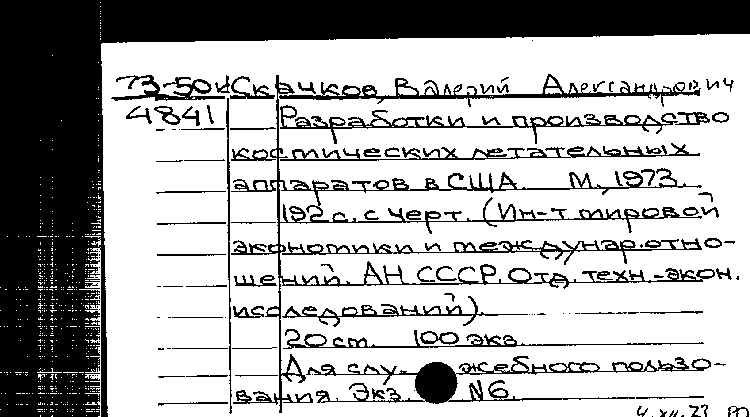 73-50к Скачков, Валерий Александрович
4841 Разработки и производство
космических летательных
аппаратов в США. М., 1973.
192 с. с черт. (Ин-т мировой
экономики и междунар. отно-
шений. АН СССР. Отд. техн.-экон.
исследований).
20 см. 100 экз.
Для служебного пользо-
вания. Экз. N6.